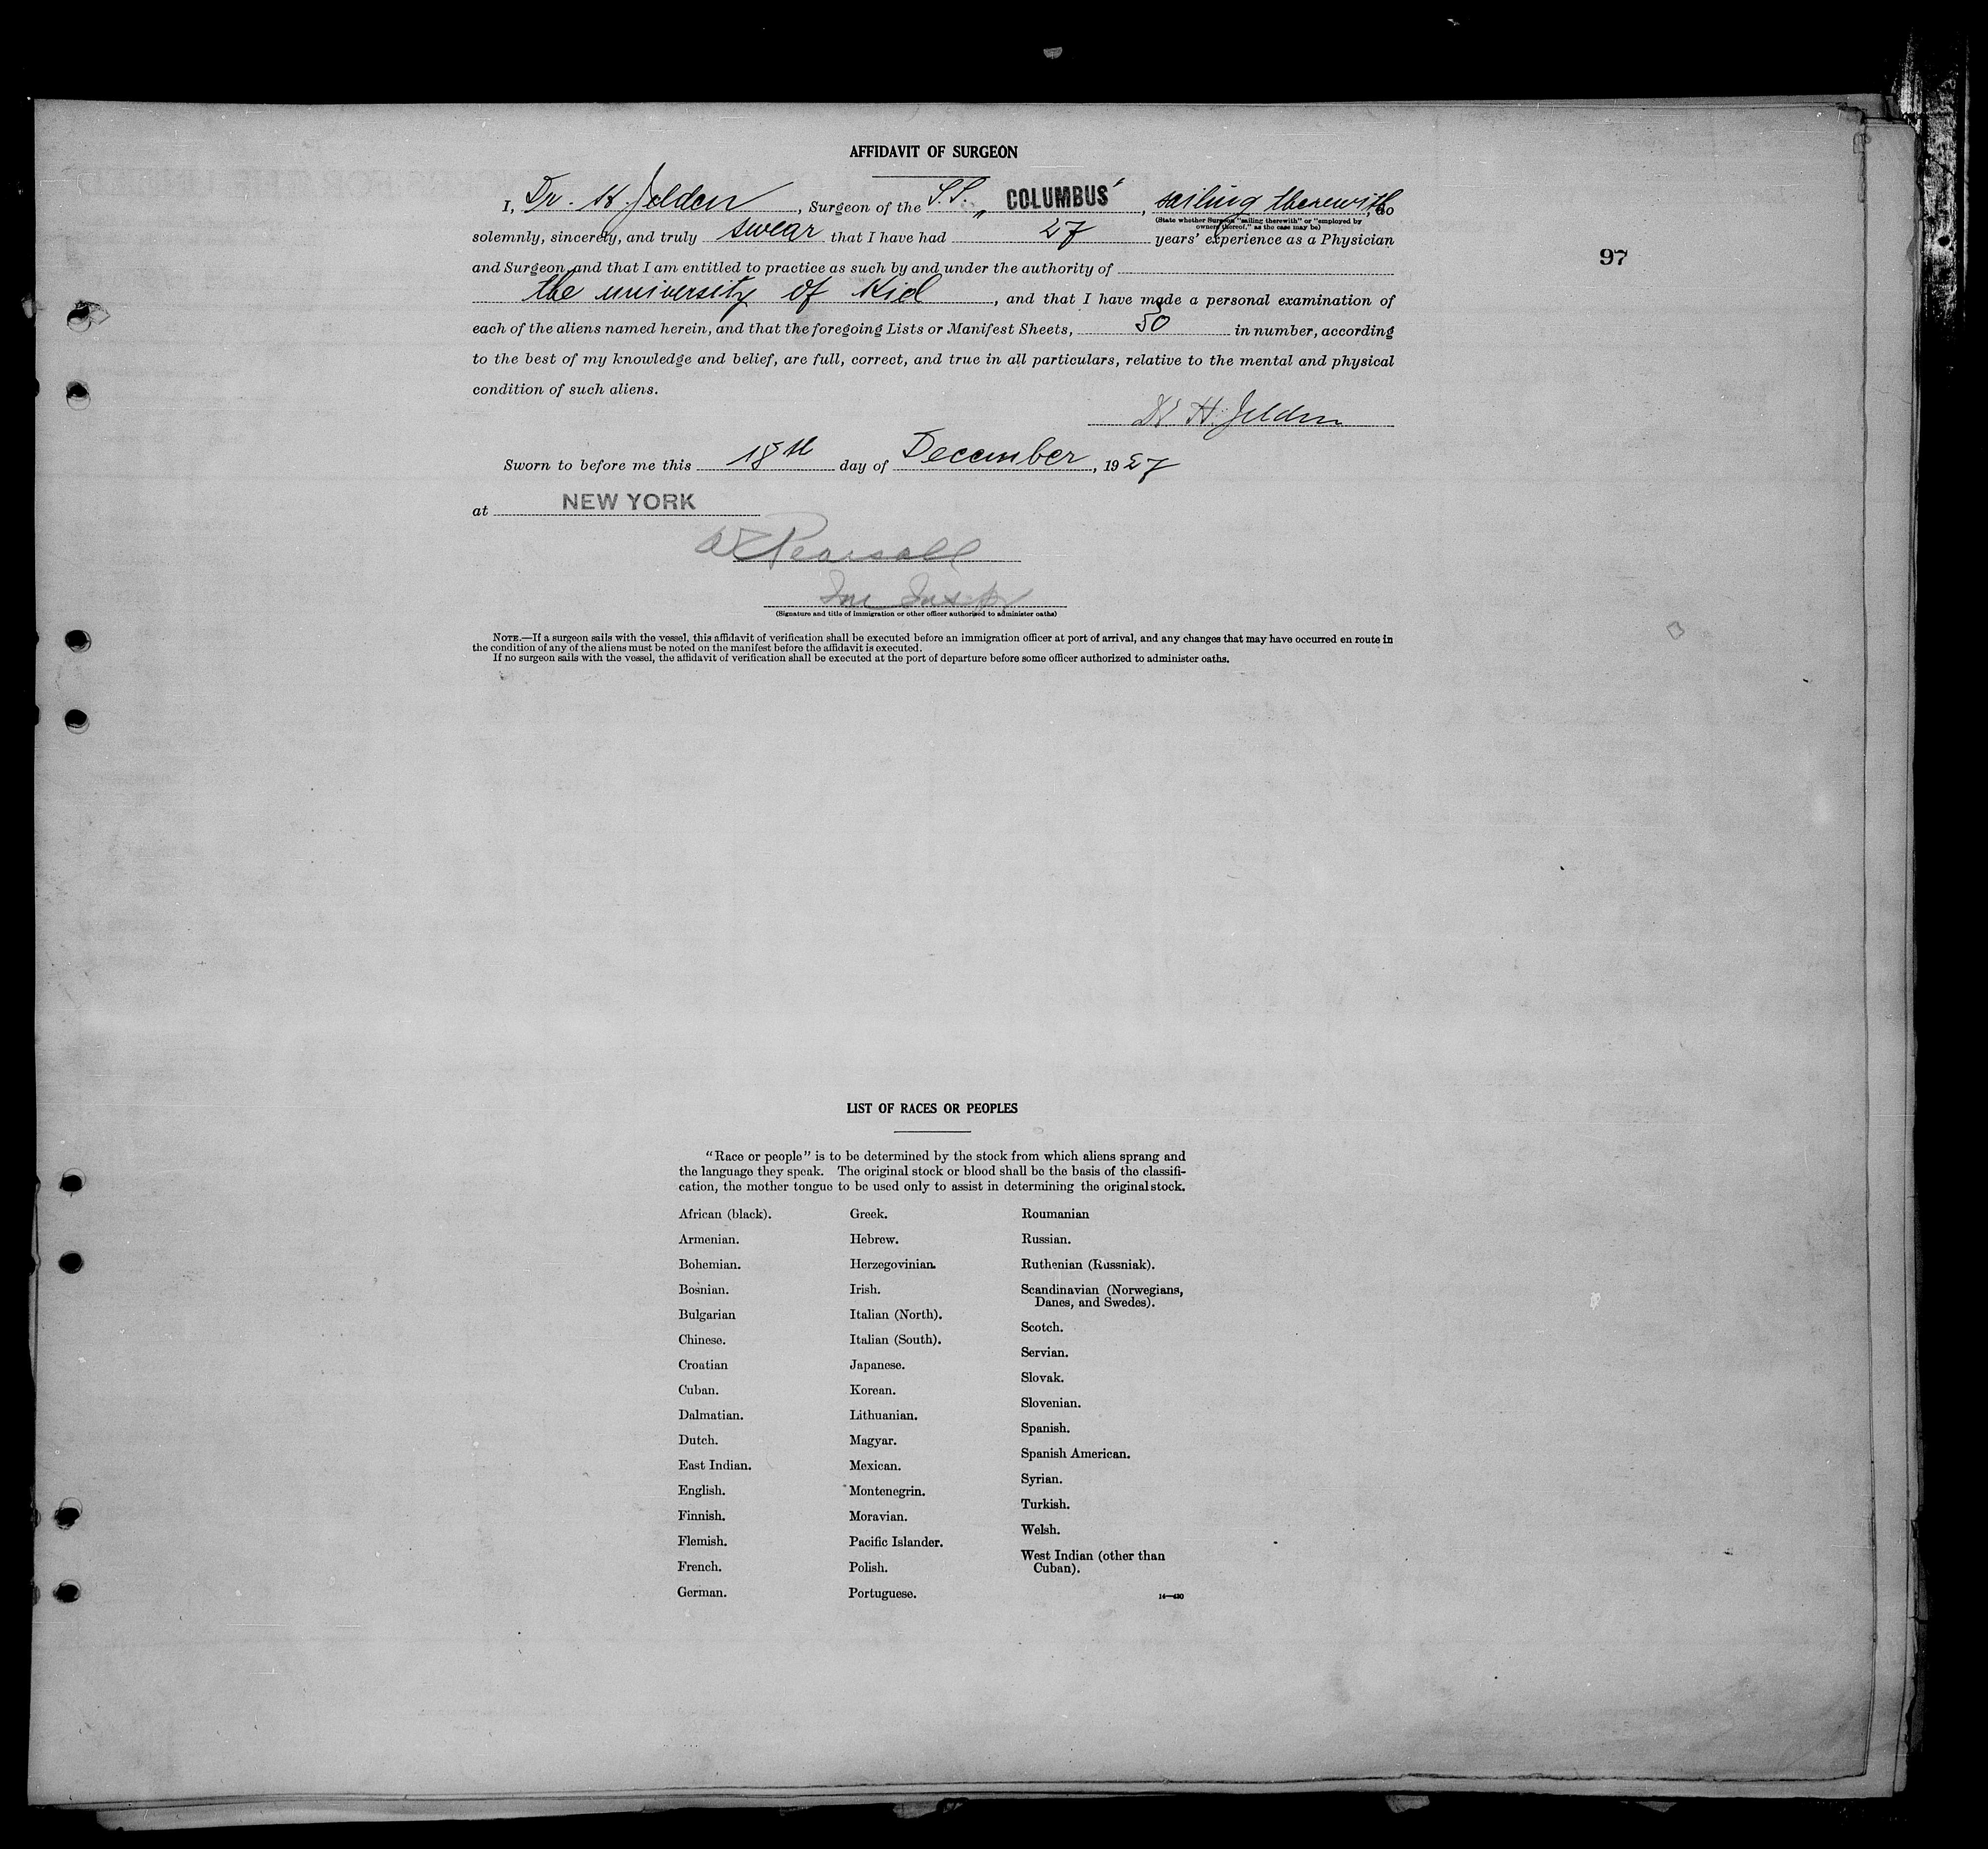 AFFIDAVIT OF SURGEON
I, Dr. H. Jelden, Surgeon of the S.S. „ COLUMBUS", sailing therewith, do
(State whether Surgeon "sailing therewith" or "employed by
owners thereof," as the case may be)
solemnly, sincerely, and truly swear that I have had 27 years' experience as a Physician
97
and Surgeon, and that I am entitled to practice as such by and under the authority of
the university of Kiel, and that I have made a personal examination of
each of the aliens named herein, and that the foregoing Lists or Manifest Sheets, 50 in number, according
to the best of my knowledge and belief, are full, correct, and true in all particulars, relative to the mental and physical
condition of such aliens.
Dr H. Jelden
Sworn to before me this 18th day of December, 1927
at NEW YORK
Pearsall
Imm Insp
(Signature and title of immigration or other officer authorized to administer oaths)
NOTE.—If a surgeon sails with the vessel, this affidavit of verification shall be executed before an immigration officer at port of arrival, and any changes that may have occurred en route in
the condition of any of the aliens must be noted on the manifest before the affidavit is executed.
If no surgeon sails with the vessel, the affidavit of verification shall be executed at the port of departure before some officer authorized to administer oaths.
LIST OF RACES OR PEOPLES
"Race or people" is to be determined by the stock from which aliens sprang and
the language they speak. The original stock or blood shall be the basis of the classifi-
cation, the mother tongue to be used only to assist in determining the original stock.
African (black).
Armenian.
Bohemian.
Bosnian.
Bulgarian
Chinese.
Croatian
Cuban.
Dalmatian.
Dutch.
East Indian.
English.
Finnish.
Flemish.
French.
German.
Greek.
Hebrew.
Herzegovinian.
Irish.
Italian (North).
Italian (South).
Japanese.
Korean.
Lithuanian.
Magyar.
Mexican.
Montenegrin.
Moravian.
Pacific Islander.
Polish.
Portuguese.
Roumanian
Russian.
Ruthenian (Russniak).
Scandinavian (Norwegians,
Danes, and Swedes).
Scotch.
Servian.
Slovak.
Slovenian.
Spanish.
Spanish American.
Syrian.
Turkish.
Welsh.
West Indian (other than
Cuban).
14—430